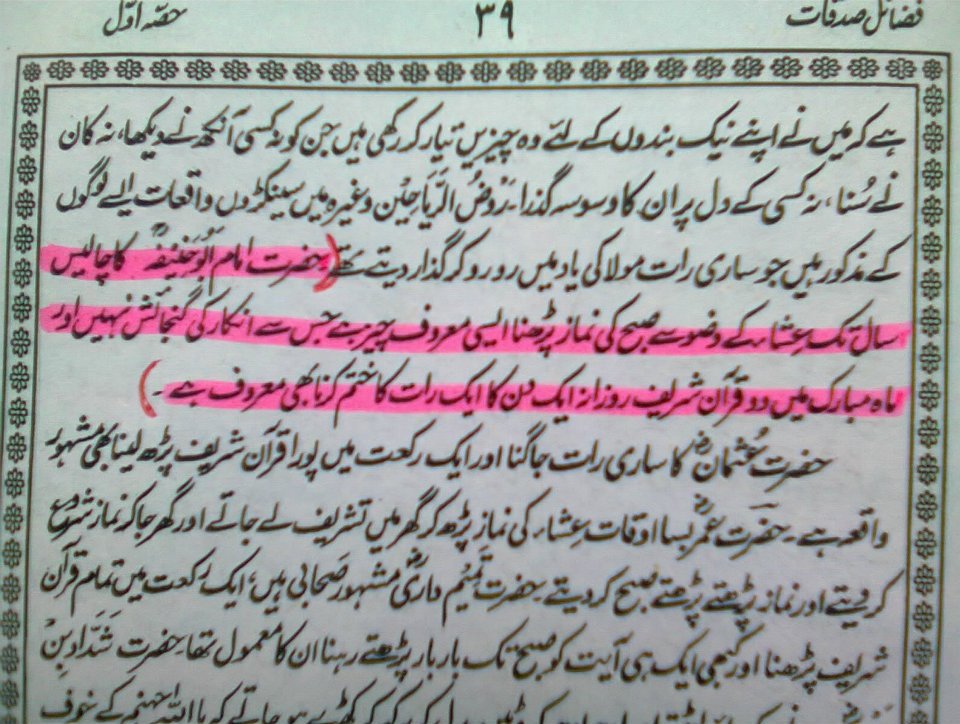 فضائل صدقات ۳۹ حصّہ اوّل
ہے کہ میں نے اپنے نیک بندوں کے لئے وہ چیزیں تیار کر رکھی ہیں جن کو نہ کسی آنکھ نے دیکھا، نہ کان
نے سُنا، نہ کسی کے دل پر ان کا وسوسہ گذرا۔ رَوضُ الرَّیَاحِیْن وغیرہ میں سینکڑوں واقعات ایسے لوگوں
کے مذکور ہیں جو ساری رات مولا کی یاد میں رو رو کر گذار دیتے تھے (حضرت امام ابُو حَنِیْفَہؒ کا چالیس
سال تک عِشاء کے وضو سے صبح کی نماز پڑھنا ایسی معروف چیز ہے جس سے انکار کی گنجائش نہیں اور
ماہ مبارک میں دو قرآن شریف روزانہ ایک دن کا ایک رات کا ختم کرنا بھی معروف ہے۔)
حضرت عُثمانؓ کا ساری رات جاگنا اور ایک رکعت میں پورا قرآن شریف پڑھ لینا بھی مشہور
واقعہ ہے۔ حضرت عُمَرؓ بسا اوقات عِشاء کی نماز پڑھ کر گھر میں تشریف لے جاتے اور گھر جا کر نماز شروع
کر دیتے اور نماز پڑھتے پڑھتے صبح کر دیتے۔ حضرت تَمِیْم داریؓ مشہور صَحابی ہیں؛ ایک رکعت میں تمام قرآن
شریف پڑھنا اور کبھی ایک ہی آیت کو صبح تک بار بار پڑھتے رہنا ان کا معمول تھا۔ حضرت شَدّاد بنؓ
کھڑے ہو جاتے کہ یا اللہ جہنم کے خوف